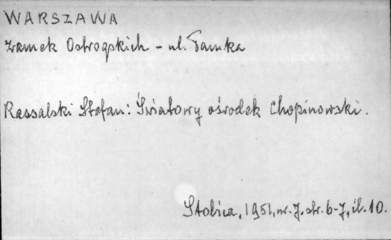 WARSZAWA
Zamek Ostrogskich - ul. Tamka
Rassalski Stefan: Światowy ośrodek Chopinowski.
Stolica, 1951, nr. 7. str. 6-7, il. 10.